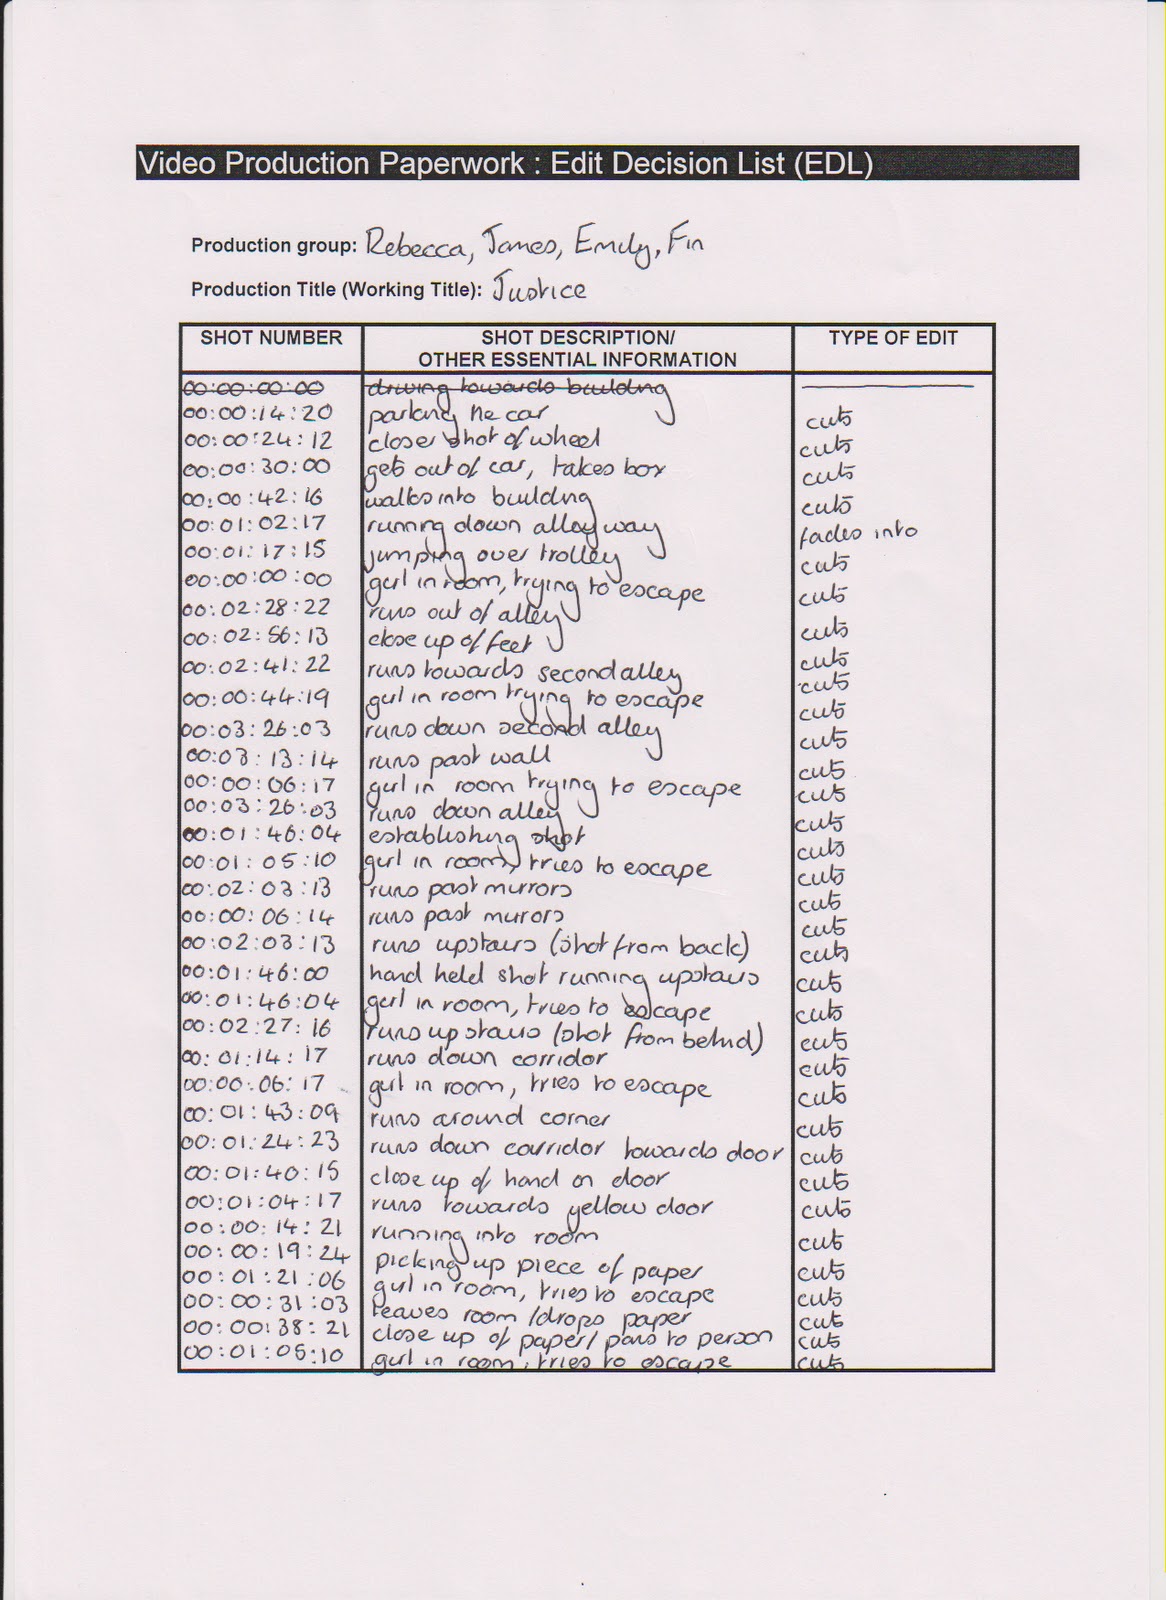 Video Production Paperwork : Edit Decision List (EDL)
Production group: Rebecca, James, Emily, Fin
Production Title (Working Title): Justice
SHOT NUMBER SHOT DESCRIPTION/ TYPE OF EDIT
OTHER ESSENTIAL INFORMATION
00:00:00:00 driving towards building
00:00:14:20 parking the car cuts
00:00:24:12 closer shot of wheel cuts
00:00:30:00 gets out of car, takes box cuts
00:00:42:16 walks into building cuts
00:01:02:17 running down alley way fades into
00:01:17:15 jumping over trolley cuts
00:00:00:00 girl in room, trying to escape cuts
00:02:28:22 runs out of alley cuts
00:02:56:13 close up of feet cuts
00:02:41:22 runs towards second alley cuts
00:00:44:19 girl in room trying to escape cuts
00:03:26:03 runs down second alley cuts
00:03:13:14 runs past wall cuts
00:00:06:17 girl in room trying to escape cuts
00:03:26:03 runs down alley cuts
00:01:46:04 establishing shot cuts
00:01:05:10 girl in room, tries to escape cuts
00:02:03:13 runs past mirrors cuts
00:00:06:14 runs past mirrors cuts
00:02:03:13 runs upstairs (shot from back) cuts
00:01:46:00 hand held shot running upstairs cuts
00:01:46:04 girl in room, tries to escape cuts
00:02:27:16 runs upstairs (shot from behind) cuts
00:01:14:17 runs down corridor cuts
00:00:06:17 girl in room, tries to escape cuts
00:01:43:09 runs around corner cuts
00:01:24:23 runs down corridor towards door cuts
00:01:40:15 close up of hand on door cuts
00:01:04:17 runs towards yellow door cuts
00:00:14:21 running into room cuts
00:00:19:24 picking up piece of paper cuts
00:01:21:06 girl in room, tries to escape cuts
00:00:31:03 leaves room/drops paper cuts
00:00:38:21 close up of paper/pans to person cuts
00:01:05:10 girl in room, tries to escape cuts